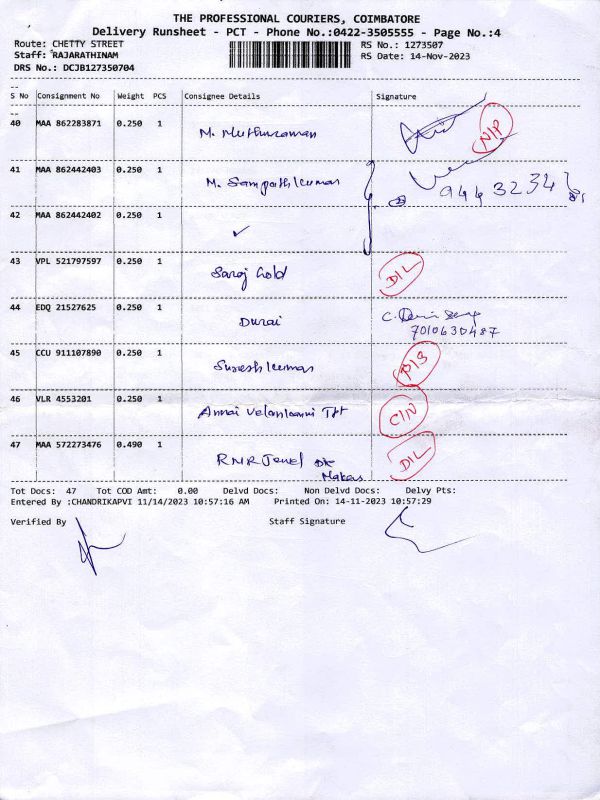 THE PROFESSIONAL COURIERS, COIMBATORE
Delivery Runsheet - PCT - Phone No.:0422-3505555 - Page No.:4
Route: CHETTY STREET RS No.: 1273507
Staff: RAJARATHINAM RS Date: 14-Nov-2023
DRS No.: DCJB127350704
S No Consignment No Weight PCS Consignee Details Signature
40 MAA 862283871 0.250 1 M. Muthuraman NIP
41 MAA 862442403 0.250 1 M. Sampathkumar 9443234
42 MAA 862442402 0.250 1 ✓
43 VPL 521797597 0.250 1 Saroj Gold DIL
44 EDQ 21527625 0.250 1 Durai C.
7010630487
45 CCU 911107890 0.250 1 Sureshkumar
46 VLR 4553201 0.250 1 Annai Velankanni Tpt CIN
47 MAA 572273476 0.490 1 RNR Jewel Makers DIL
Tot Docs: 47 Tot COD Amt: 0.00 Delvd Docs: Non Delvd Docs: Delvy Pts:
Entered By :CHANDRIKAPVI 11/14/2023 10:57:16 AM Printed On: 14-11-2023 10:57:29
Verified By Staff Signature